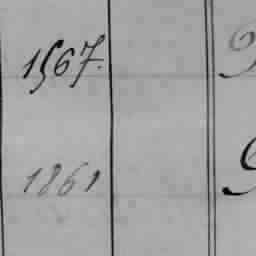 1567.
1861